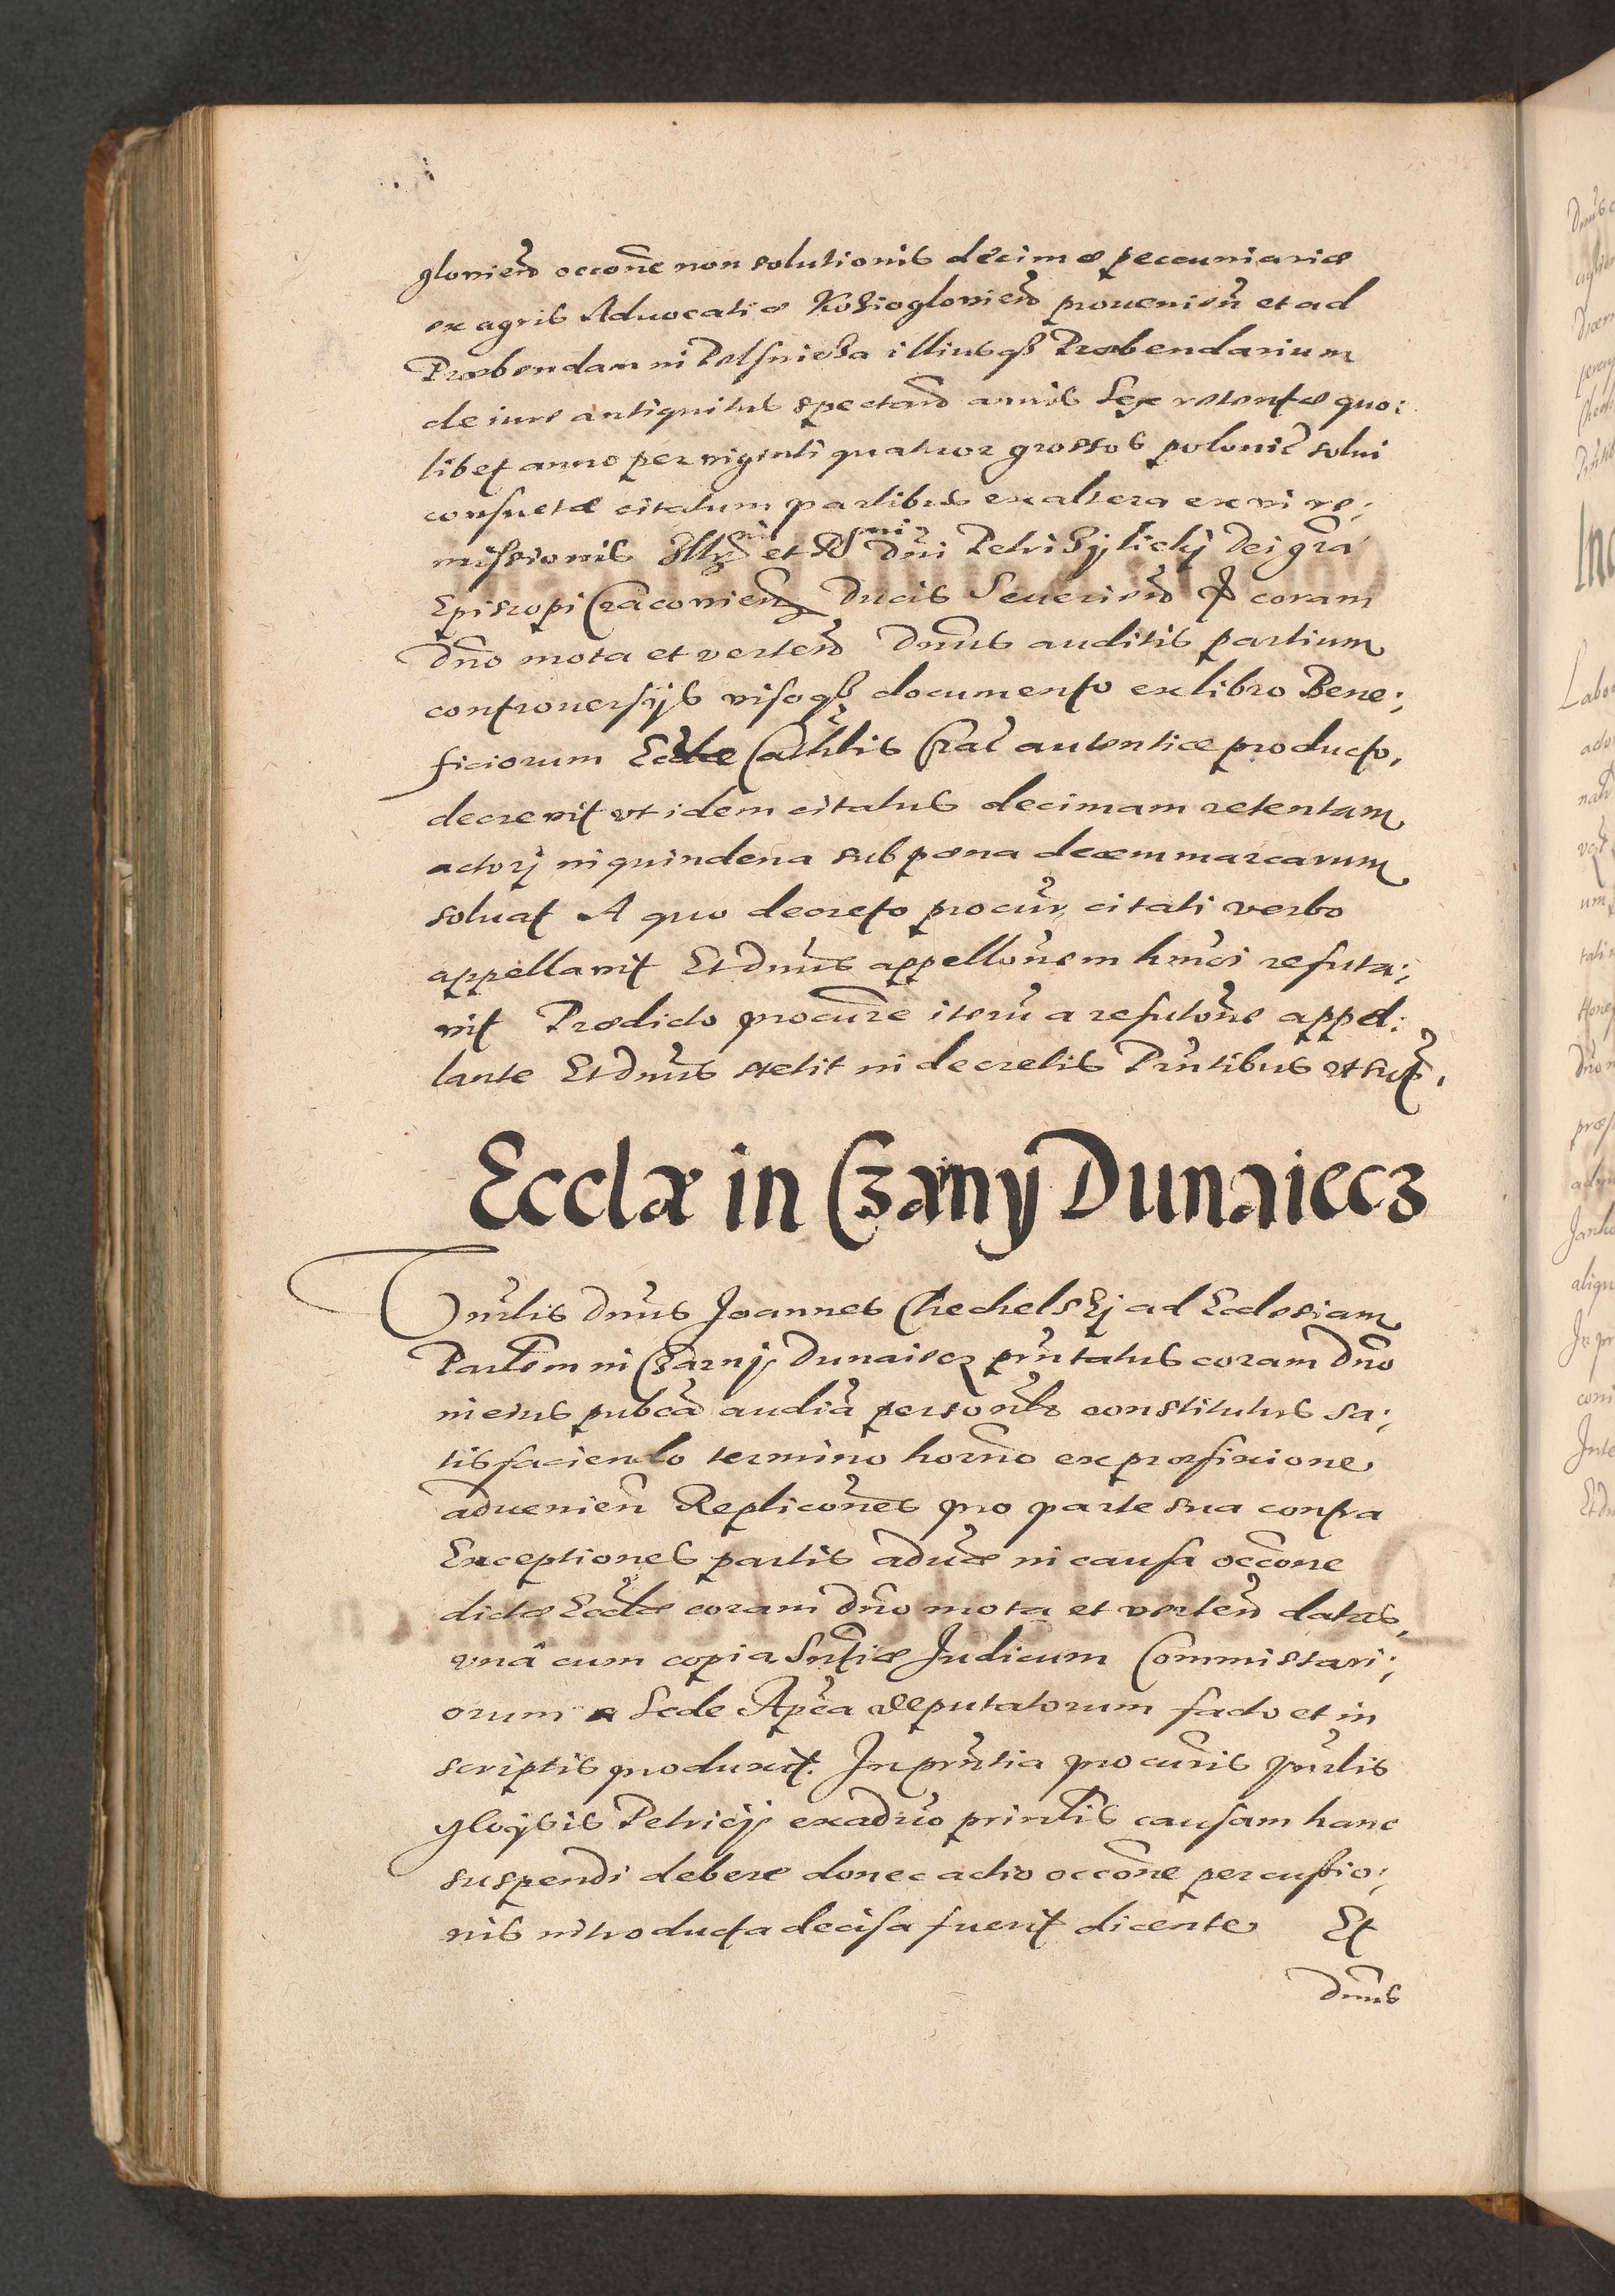 glouien̄ occōne non solutionis decimæ pecuniariæ
ex agris Aduocatiæ Koziogloviens̄ prouenien̄ et ad
Præbendam in Pelsnicza illiusq̨ Præbendarium
de iure antiquitus spectan̄ annis Sex retentæ quo:
libet anno per viginti quatuor grossos polonic̄ solui
consuetæ citatum partibus ex altera ex vi re:
missionis Illr̄mi et R̄mi Dn̄i Petri Tylicky Dei gr̄a
Episcopi Cracouien̄ Ducis Seuerien̄ &c coram
Dn̄o mota et verten̄ Dnūs auditis partium
controuersijs visoq̨ documento ex libro Bene:
ficiorum Ecclæ Cathlis Crac̄ autenticæ producto,
decreuit vt idem citatus decimam retentam
actorj in quindena sub pæna decem marcarum
soluat A quo decreto procur̄ citati verbo
appellauit Et Dnūs appellōnem hmōi refuta:
uit Prædicto procur̄e iterū a refutōne appel:
lante Et Dnūs stetit in decretis Prn̄tibus vt sup̄.
Ecclæ in Czarny Dunaiecz
Vnrlis Dnūs Joannes Chechelskj ad Ecclesiam
Parlem in Czarnj Dunaiecz prn̄tatus coram Dn̄o
in eius pub̄ca audiā personlr constitutus sa:
tisfaciendo termino horn̄o ex præfixione
aduenien̄ Replicōnes pro parte sua contra
Exceptiones partis aduæ in causa occōne
dictæ Ecclæ coram Dn̄o mota et verten̄ datas,
vnâ cum copia Sn̄tiæ Judicum Commissari:
orum a Sede Ap̄ca deputatorum facto et in
scriptis produxit. In prn̄tia procur̄is Vnrlis
Aloysis Petricij ex aduo principlis causam hanc
suspendi debere donec actio occōne percussio:
nis introducta decisa fuerit dicente Et
Dnūs